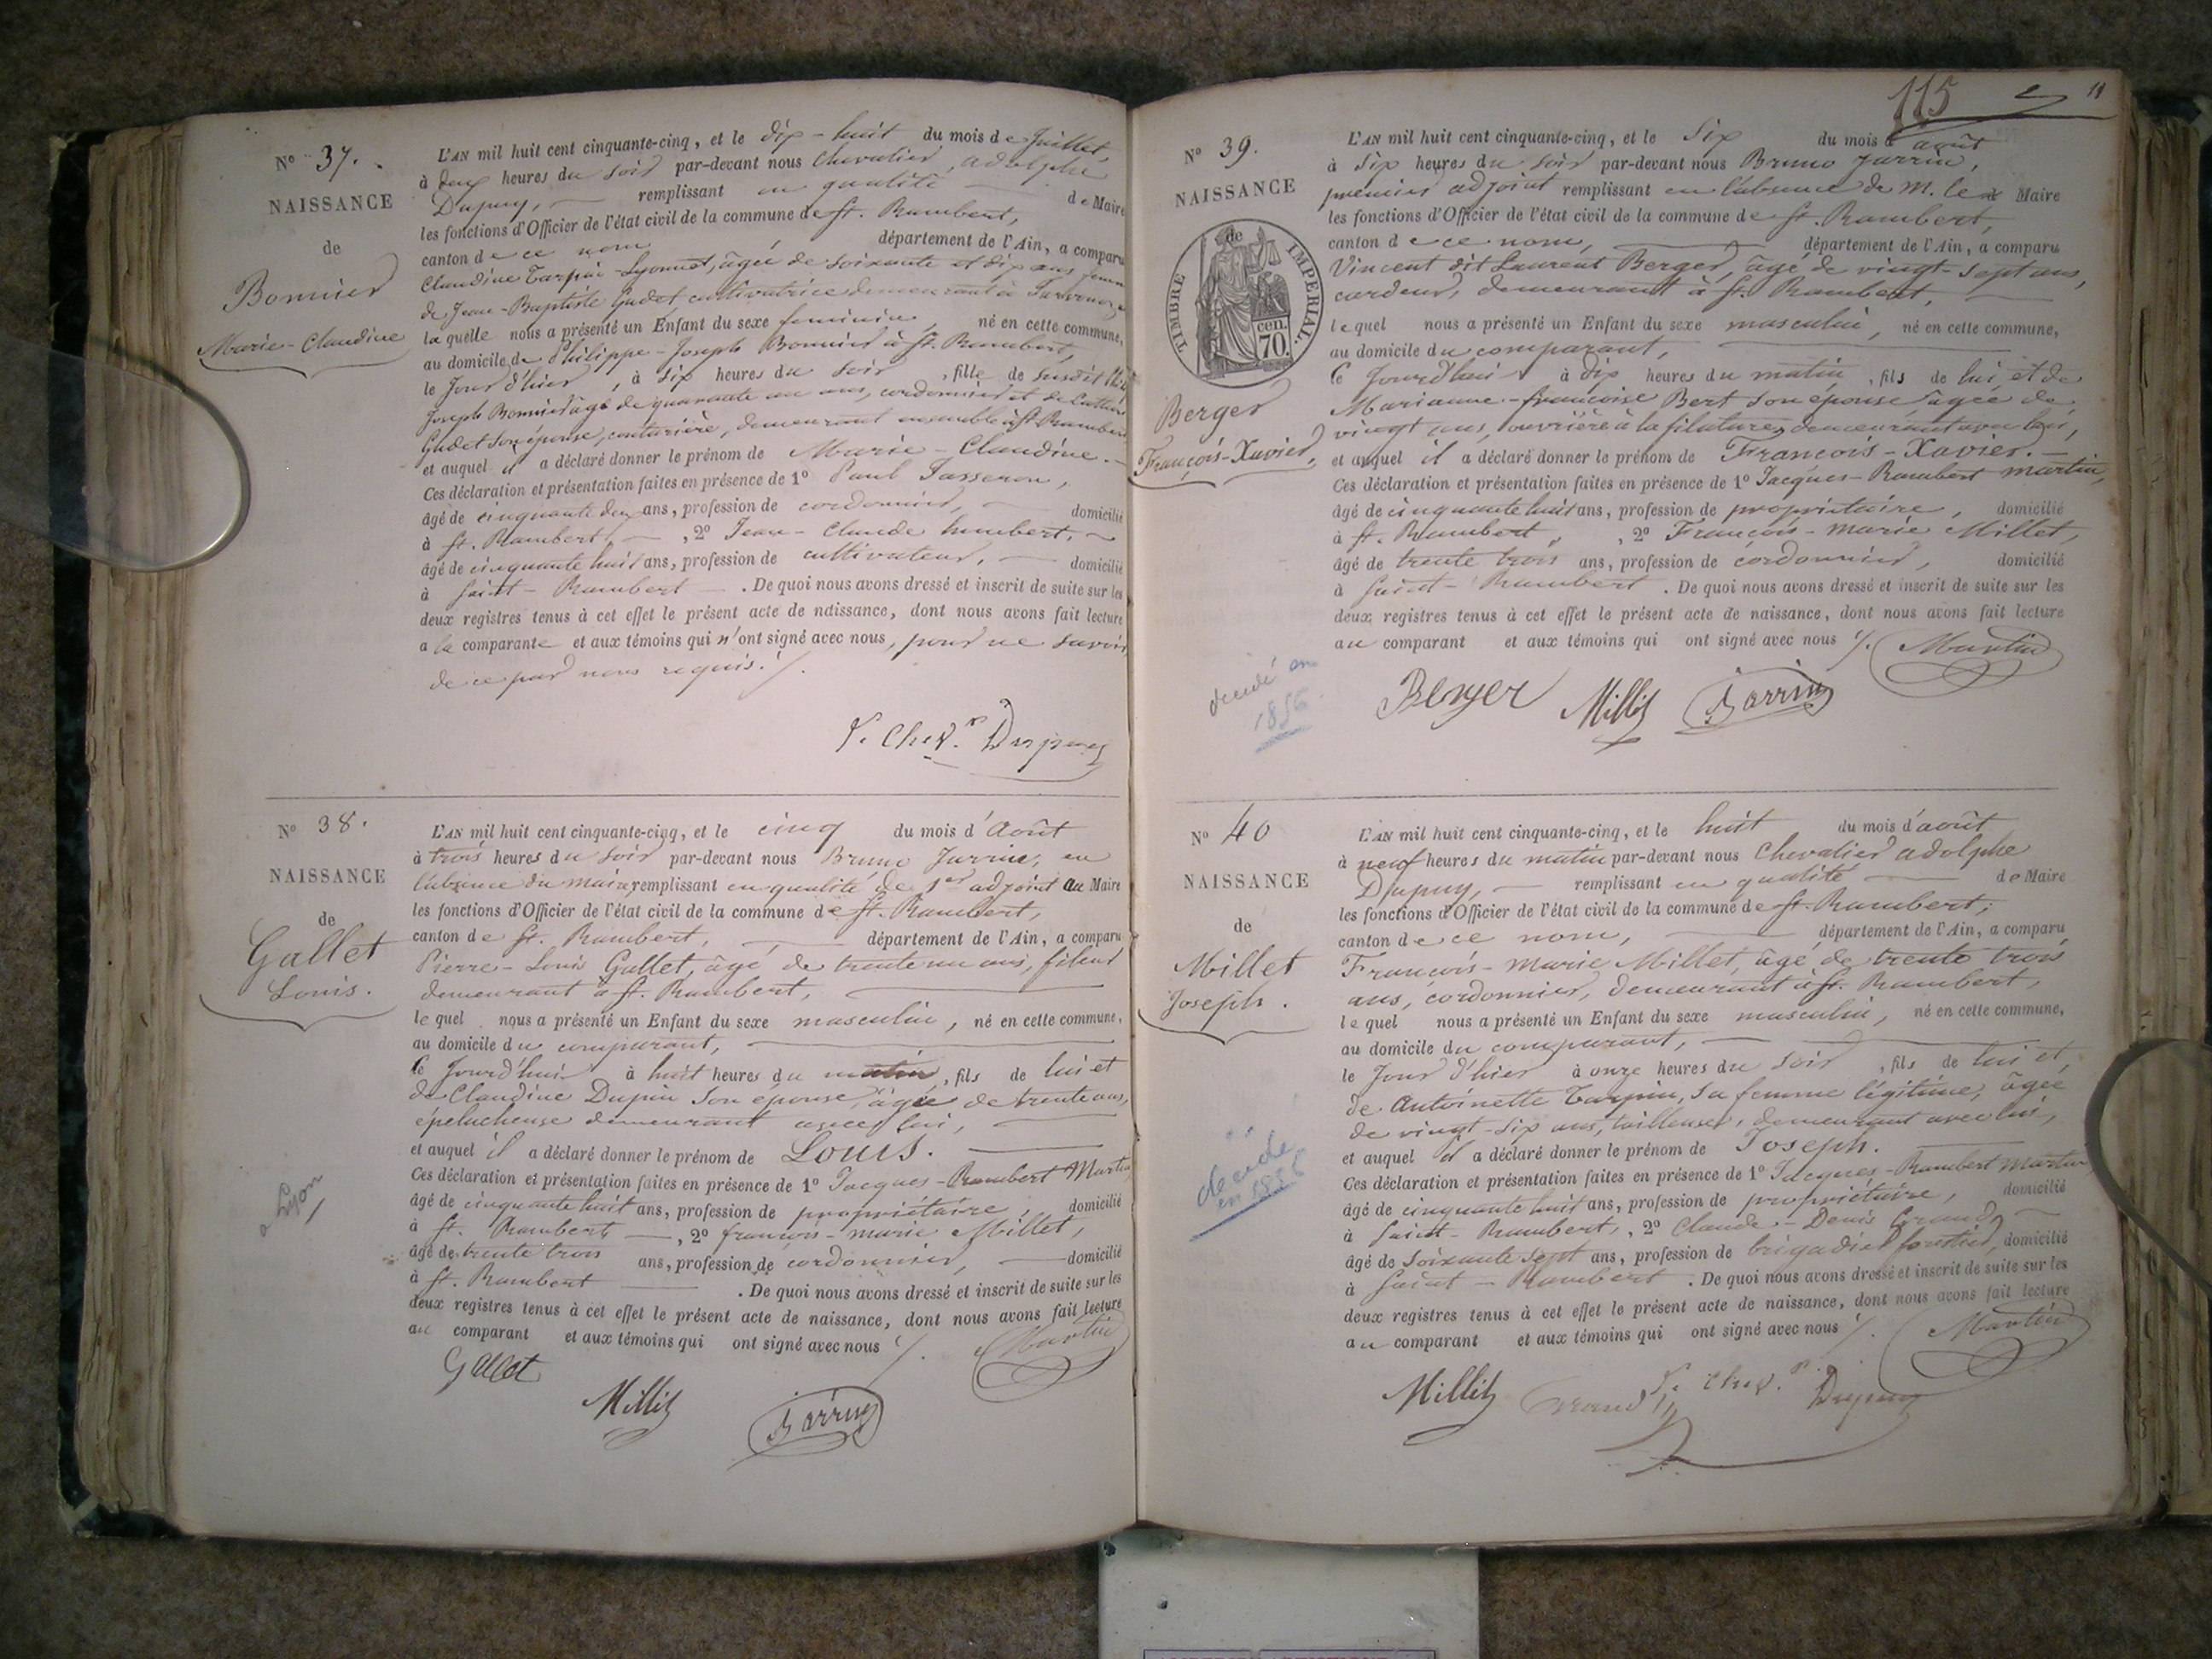 N° 37.
NAISSANCE
de
Bonnier
Marie-Claudine
L'AN mil huit cent cinquante-cinq, et le dix-huit du mois de Juillet,
à deux heures du soir par-devant nous Chevalier, adolphe
Dupuy, remplissant en qualité de Maire
les fonctions d'Officier de l'état civil de la commune de St. Rambert,
canton de ce nom département de l'Ain, a comparu
Claudine Tarpin-Lyonnet, âgée de soixante et dix ans femme
de Jean-Baptiste Gudet, cultivatrice demeurant à
la quelle nous a présenté un Enfant du sexe feminin, né en cette commune,
au domicile de Philippe-Joseph Bonnier à St. Rambert,
le Jour d'hier, à six heures du soir, fille de susdit
Joseph Bonnier âgé de quarante un ans, cordonnier et de
Gudet son épouse, couturière, demeurant ensemble à St Rambert
et auquel il a déclaré donner le prénom de Marie-Claudine.
Ces déclaration et présentation faites en présence de 1° Paul Tasseron,
âgé de cinquante deux ans, profession de cordonnier, domicilié
à St. Rambert, 2° Jean-Claude humbert,
âgé de cinquante huit ans, profession de cultivateur, domicilié
à Saint-Rambert. De quoi nous avons dressé et inscrit de suite sur les
deux registres tenus à cet effet le présent acte de naissance, dont nous avons fait lecture
a la comparante et aux témoins qui n'ont signé avec nous, pour ne savoir
de ce par nous requis ./.
Chev.r Dupuy
N° 38.
NAISSANCE
de
Gallet
Louis.
a Lyon
L'AN mil huit cent cinquante-cinq, et le cinq du mois d'Août
à trois heures du soir par-devant nous Bruno Jarrin, en
l'absence du maire remplissant en qualité de 1er adjoint au Maire
les fonctions d'Officier de l'état civil de la commune de St. Rambert,
canton de St. Rambert, département de l'Ain, a comparu
Pierre-Louis Gallet, âgé de trente un ans, fileur
demeurant à St. Rambert,
le quel nous a présenté un Enfant du sexe masculin, né en cette commune,
au domicile du comparant,
ce Jourd'hui à huit heures du matin, fils de lui et
de Claudine Dupin son épouse, âgée de trente ans,
éplucheuse demeurant avec lui,
et auquel il a déclaré donner le prénom de Louis.
Ces déclaration et présentation faites en présence de 1° Jacques-Rambert Martin
âgé de cinquante huit ans, profession de propriétaire, domicilié
à St. Rambert, 2° françois-marie Millet,
âgé de trente trois ans, profession de cordonnier, domicilié
à St. Rambert. De quoi nous avons dressé et inscrit de suite sur les
deux registres tenus à cet effet le présent acte de naissance, dont nous avons fait lecture
au comparant et aux témoins qui ont signé avec nous ./.
Martin
Gallet
Millet
Jarrin
115
11
N° 39.
NAISSANCE
de
TIMBRE IMPERIAL.
cen.
70.
Berger
François-Xavier,
décédé en
1856
L'AN mil huit cent cinquante-cinq, et le Six du mois d'août
à Six heures du soir par-devant nous Bruno Jarrin,
premier adjoint remplissant en l'absence de M. le Maire
les fonctions d'Officier de l'état civil de la commune de St. Rambert,
canton de ce nom, département de l'Ain, a comparu
Vincent dit Laurent Berger, âgé de vingt-sept ans,
cardeur, demeurant à St. Rambert,
lequel nous a présenté un Enfant du sexe masculin, né en cette commune,
au domicile du comparant,
ce Jourd'hui à dix heures du matin, fils de lui, et de
Marianne-françoise Bert son épouse âgée de
vingt ans, ouvrière à la filature, demeurant avec lui,
et auquel il a déclaré donner le prénom de François-Xavier.
Ces déclaration et présentation faites en présence de 1° Jacques-Rambert martin,
âgé de cinquante huit ans, profession de propriétaire, domicilié
à St. Rambert, 2° François-marie Millet,
âgé de trente trois ans, profession de cordonnier, domicilié
à Saint-Rambert. De quoi nous avons dressé et inscrit de suite sur les
deux registres tenus à cet effet le présent acte de naissance, dont nous avons fait lecture
au comparant et aux témoins qui ont signé avec nous ./. Martin
Berger Millet Jarrin
N° 40
NAISSANCE
de
Millet
Joseph.
décédé
en 1856
L'AN mil huit cent cinquante-cinq, et le huit du mois d'août
à neuf heures du matin par-devant nous Chevalier adolphe
Dupuy, remplissant en qualité de Maire
les fonctions d'Officier de l'état civil de la commune de St. Rambert,
canton de ce nom, département de l'Ain, a comparu
François-Marie Millet, âgé de trente trois
ans, cordonnier, demeurant à St. Rambert,
lequel nous a présenté un Enfant du sexe masculin, né en cette commune,
au domicile du comparant,
le Jour d'hier à onze heures du soir, fils de lui et
de Antoinette Tarpin, sa femme légitime, âgée
de vingt-six ans, tailleuse, demeurant avec lui,
et auquel il a déclaré donner le prénom de Joseph.
Ces déclaration et présentation faites en présence de 1° Jacques-Rambert martin
âgé de cinquante huit ans, profession de propriétaire, domicilié
à Saint-Rambert, 2° Claude-Denis Grand
âgé de soixante sept ans, profession de brigadier forestier, domicilié
à Saint-Rambert. De quoi nous avons dressé et inscrit de suite sur les
deux registres tenus à cet effet le présent acte de naissance, dont nous avons fait lecture
au comparant et aux témoins qui ont signé avec nous ./. Martin
Millet Grand Chev.r Dupuy